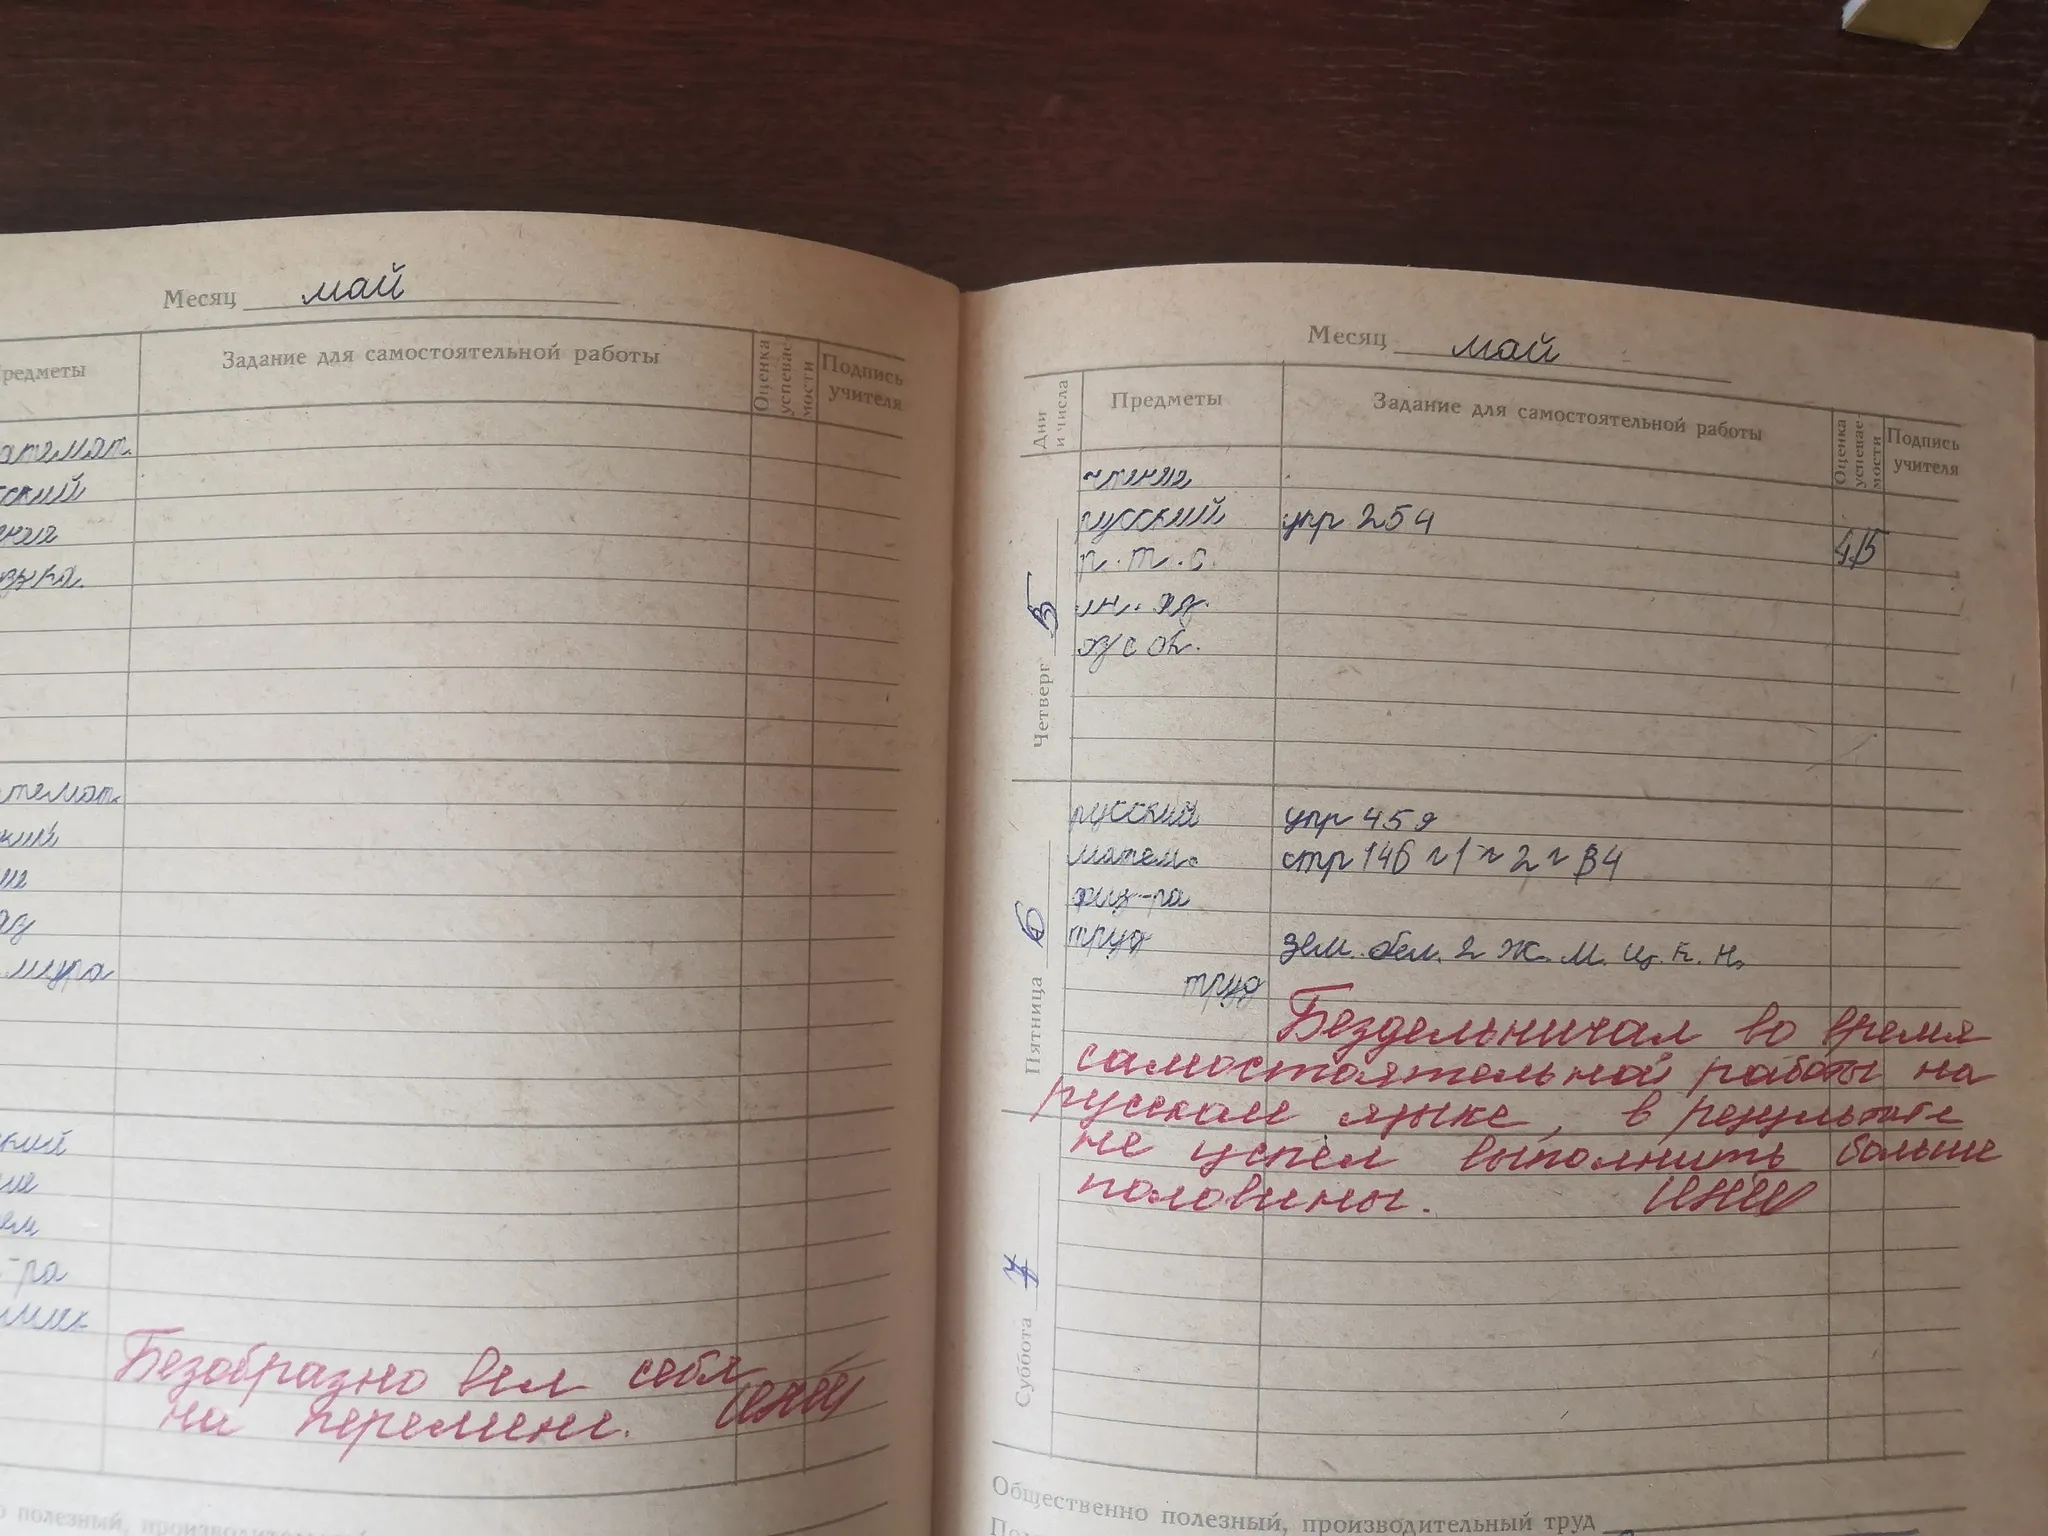 Месяц май
Предметы Задание для самостоятельной работы Оценка успевае-мости Подпись учителя
атемат.
сский
ения
зыка.
темат.
ский
ние
мура
ский
ние
тем
-ра
Безобразно вел себя
на перемене.
полезный, производительный
Месяц май
Дни и числа Предметы Задание для самостоятельной работы Оценка успевае-мости Подпись учителя
Четверг 5
чтения
русский упр 254
р.т.с. 4/5
ин. яз.
Пятница 6
русский упр 459
матем. стр 146 ~1 ~2 ~ 34
физ-ра
труд зем. обл. 2 Ж. М. Ц. Е. Н.
труд
Бездельничал во время
самостоятельной работы на
русском языке, в результате
не успел выполнить больше
половины.
Суббота 7
Общественно полезный, производительный труд